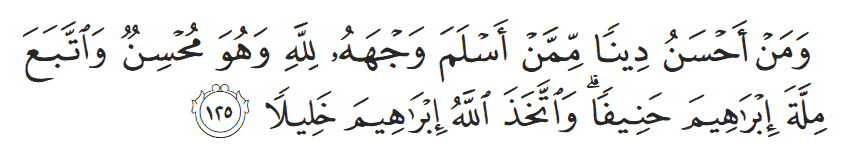 وَمَنۡ أَحۡسَنُ دِينٗا مِّمَّنۡ أَسۡلَمَ وَجۡهَهُۥ لِلَّهِ وَهُوَ مُحۡسِنٞ وَٱتَّبَعَ
مِلَّةَ إِبۡرَٰهِيمَ حَنِيفٗاۗ وَٱتَّخَذَ ٱللَّهُ إِبۡرَٰهِيمَ خَلِيلٗا ١٢٥